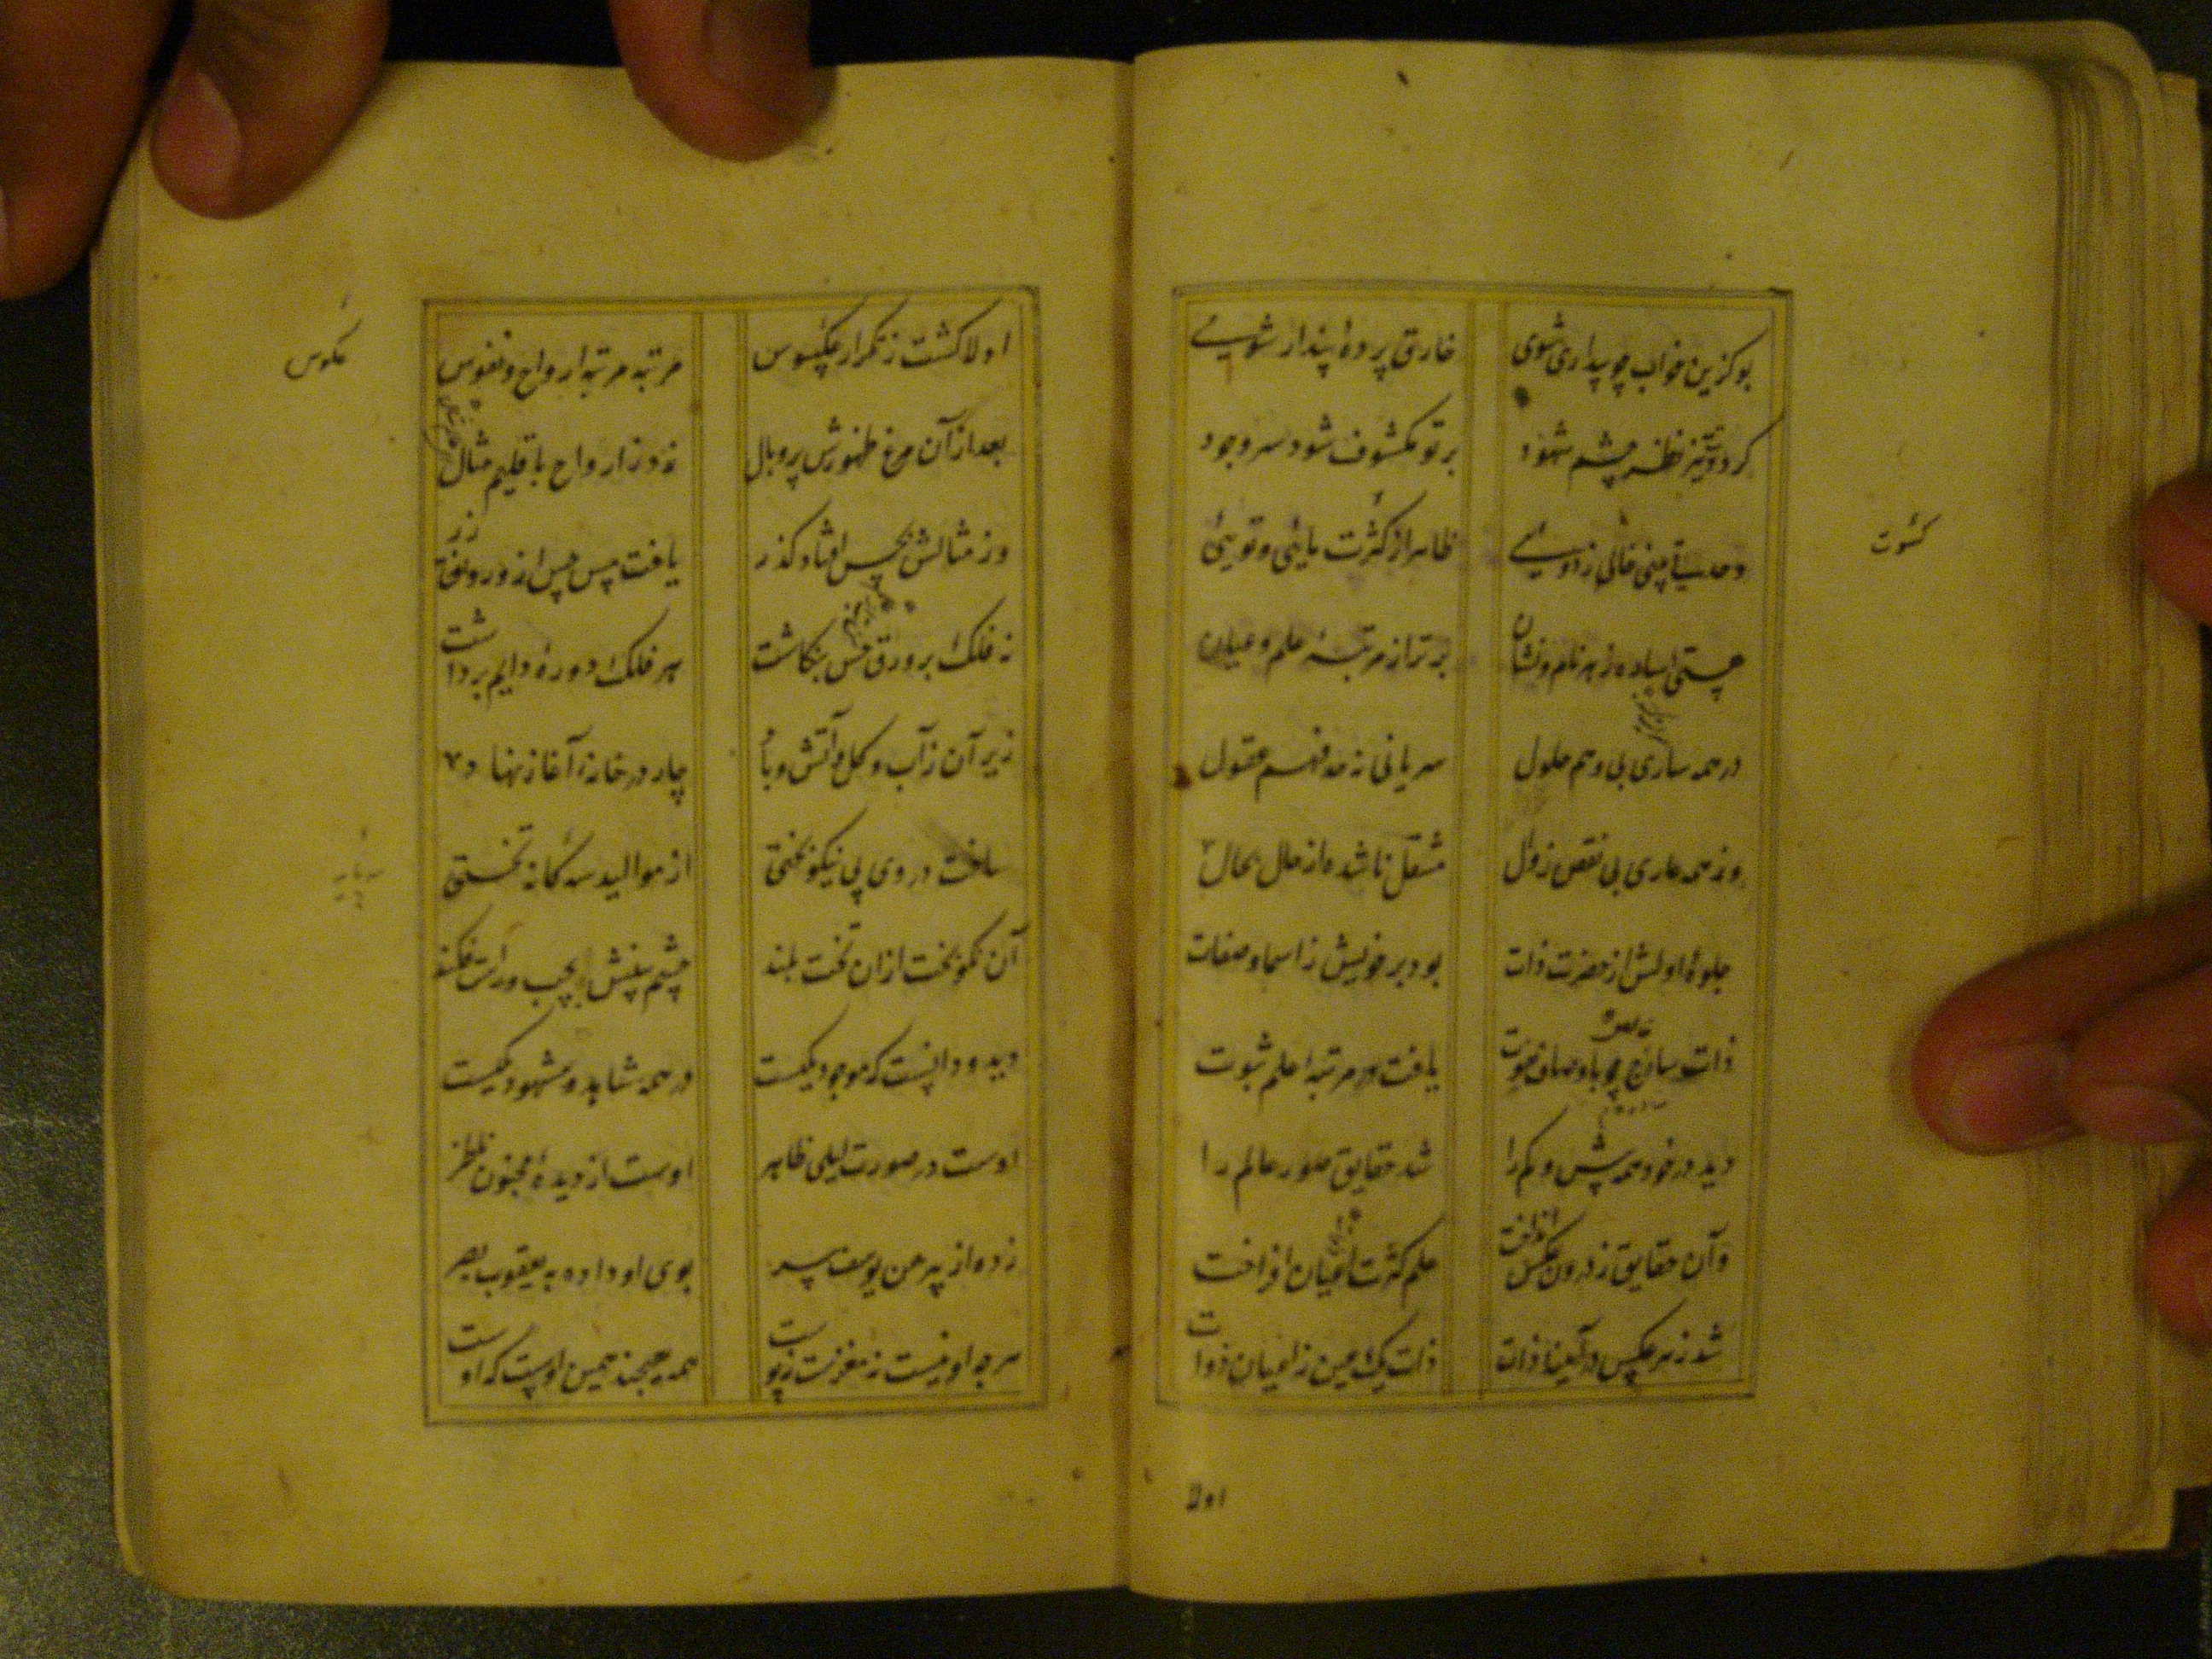 بو کزین خواب چو بیداری شوی خارق پردهٔ پندار شوی
کردت تیز نظر چشم شهود بر تو مکشوف شود سر وجود
وحدتی بینی خالی ز دویی ظاهر از کثرت مایی و تویی
هستی ساده ز هر نام و نشان برتر از مرتبهٔ علم و عیان
در همه ساری بی وهم حلول سریانی ز حد فهم عقول
وز همه عاری بی نقص زوال منتقل ناشده از حال بحال
جلوهٔ اولش از حضرت ذات بود بر خویش ز اسما و صفات
ذات ساذج چو باوصاف نعوت یافت در مرتبهٔ علم ثبوت
دید در خود همه بیش و کم را شد حقایق صور عالم را
وآن حقایق ز درون عکس انداخت علم کثرت اعیان افراخت
شد ز هر عکس در آیینهٔ ذات ذات یک عین ز اعیان ذوات
کسوت
اولا
اولا کشت ز تکرار عکوس مرتبه مرتبه ارواح و نفوس
بعد از آن مرغ ظهورش پر و بال زد ز ارواح باقلیم مثال
وز مثالش بحس افتاد کذر یافت پس حس ازو رونق
ز فلک بر ورق حس بنکاشت هر فلک دورهٔ دایم برداشت
زیر آن ز آب و کل و آتش و باد چار در خانه ز آغاز نهاد
ساخت در وی پی نیکو بختی از موالید سه کانه تختی
آن نکو بخت ازان تخت بلند چشم بینش بچپ و راست فکند
دید و دانست که موجود یکیست در همه شاهد و مشهود یکیست
اوست در صورت لیلی ظاهر اوست از دیدهٔ مجنون ناظر
زده از پیرهن یوسف سر بوی او داده به یعقوب بصر
هر چه او نیست ز مغزست و ز پوست همه هیچند همین اوست که اوست
عکوس